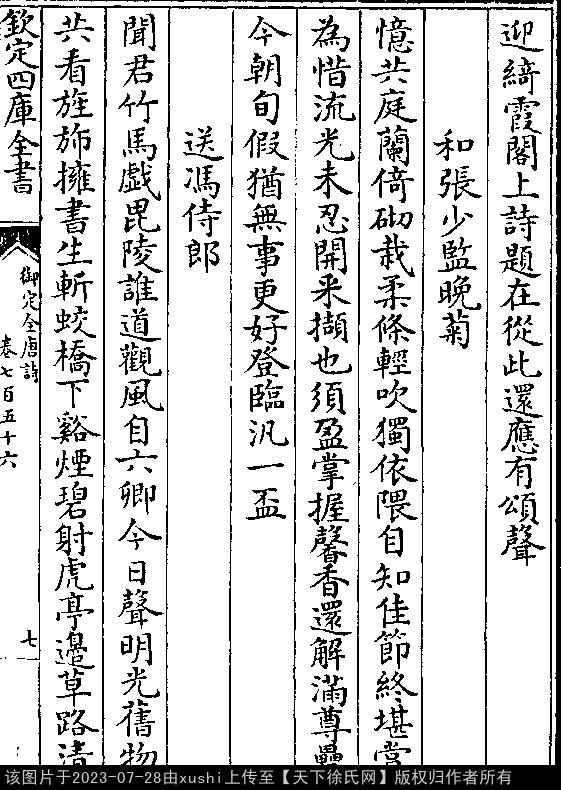 迎綺霞閣上詩題在從此還應有頌聲
和張少監晚菊
憶共庭蘭倚砌栽柔條輕吹獨依隈自知佳節終堪賞
為惜流光未忍開采擷也須盈掌握馨香還解滿尊罍
今朝旬假猶無事更好登臨汎一盃
送馮侍郎
聞君竹馬戲毘陵誰道觀風自六卿今日聲明光舊物
共看旌斾擁書生斬蛟橋下谿煙碧射虎亭邊草路清
欽定四庫全書
御定全唐詩
卷七百五十六
七
该图片于2023-07-28由xushi上传至【天下徐氏网】版权归作者所有